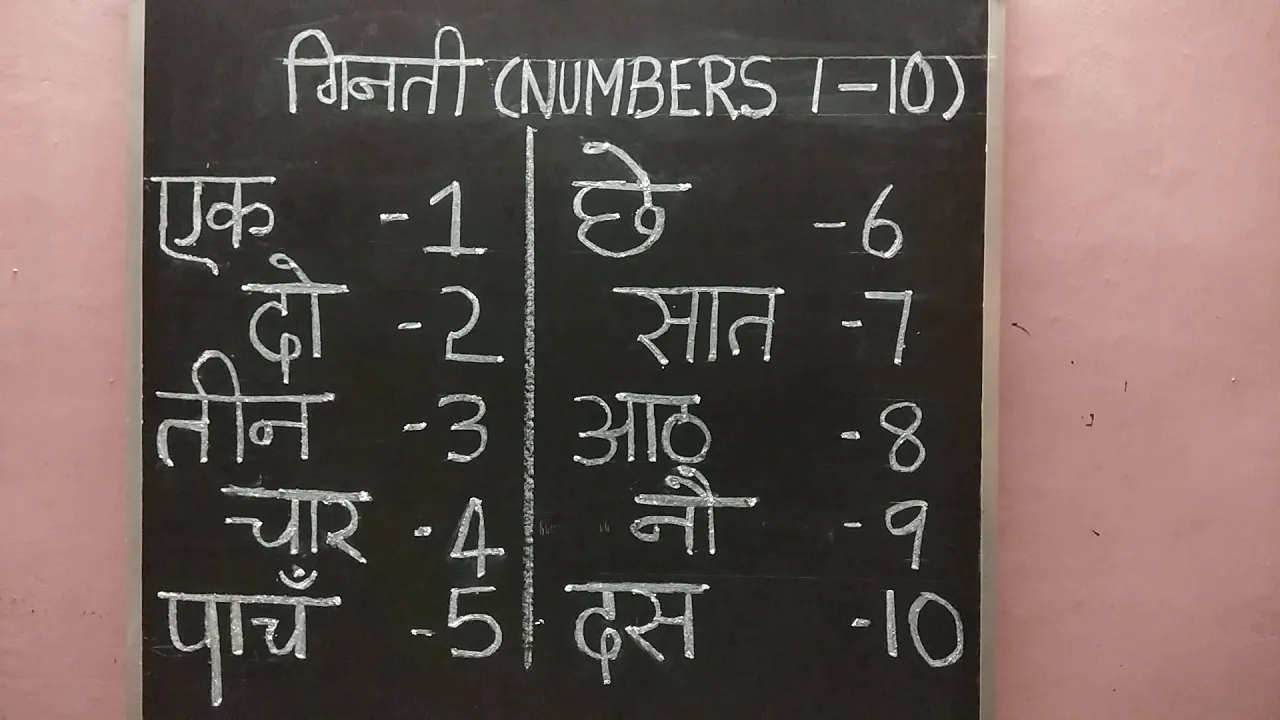 गिनती (NUMBERS 1-10)
एक -1
दो -2
तीन -3
चार -4
पाचँ -5
छे -6
सात -7
आठ -8
नौ -9
दस -10